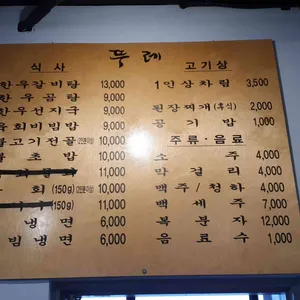 뚜레
식 사
한우갈비탕 13,000
한우곰탕 9,000
한우선지국 9,000
육회비빔밥 9,000
불고기전골 (2인분이상) 10,000
초 밥 10,000
11,000
회 (150g) (2인분이상) 10,000
(150g) 11,000
냉 면 6,000
비빔 냉 면 6,000
고기상
1인상차림 3,500
된장찌개 (후식) 2,000
공 기 밥 1,000
주류 · 음료
소 주 4,000
막 걸 리 4,000
맥주 / 청하 4,000
백 세 주 7,000
복 분 자 12,000
음 료 수 1,000